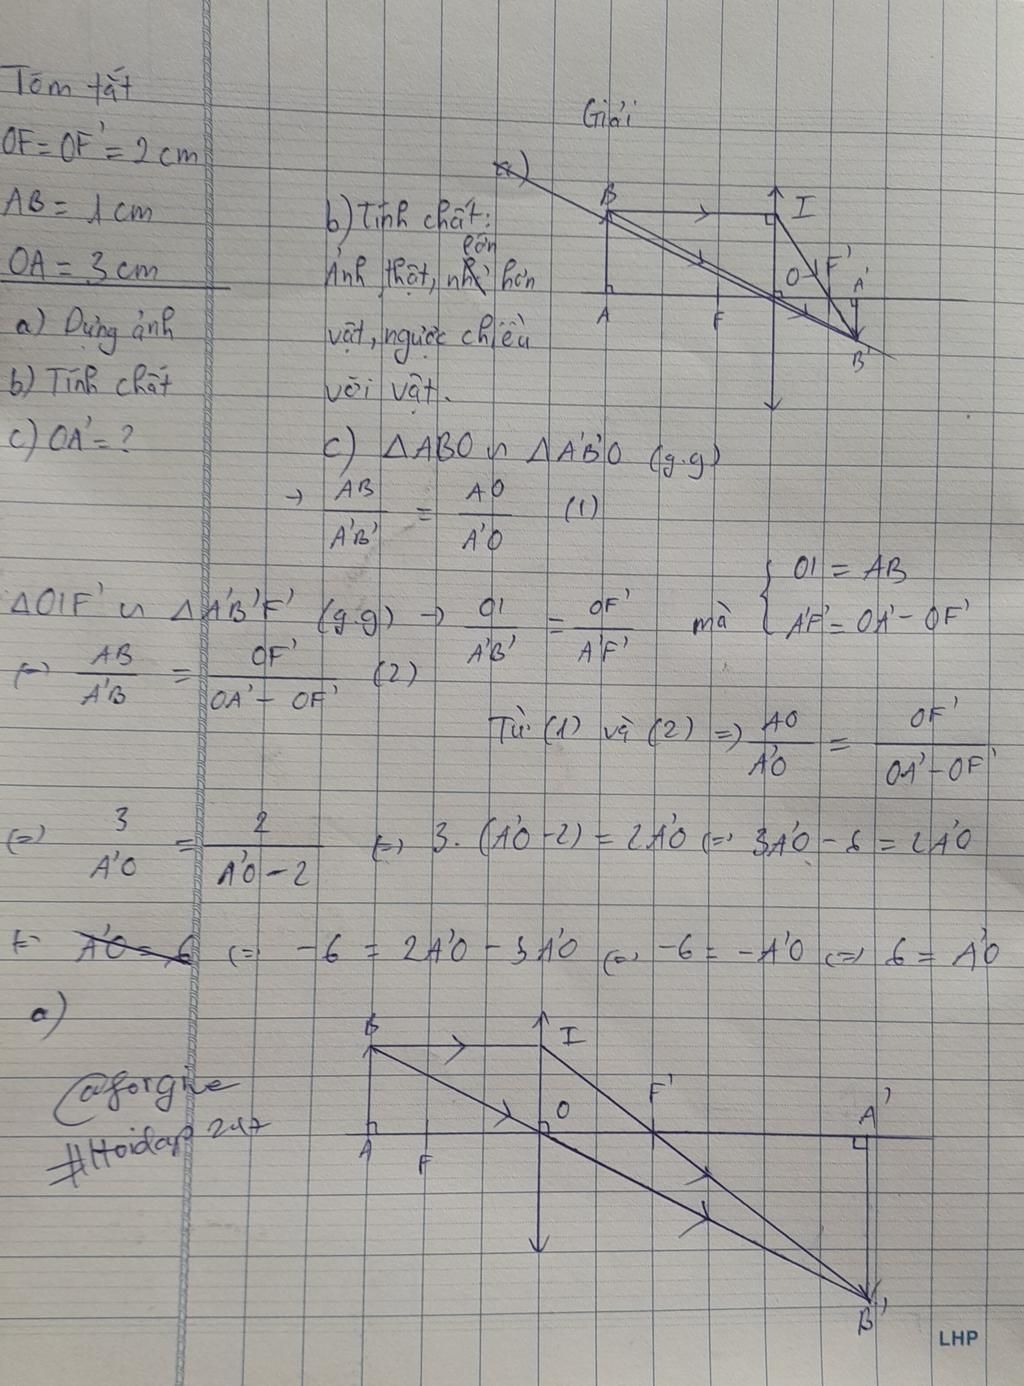 Tóm tắt
OF = OF' = 2 cm
AB = 1 cm
OA = 3 cm
a) Dựng ảnh
b) Tính chất
c) OA' = ?
Giải
a)
B
I
O
F'
A'
A
F
B'
b) Tính chất:
lớn
Ảnh thật, nhỏ hơn
vật, ngược chiều
với vật.
c) ΔABO ∽ ΔA'B'O (g.g)
→ AB/A'B' = AO/A'O (1)
ΔOIF' ∽ ΔA'B'F' (g.g) → OI/A'B' = OF'/A'F' mà { OI = AB
A'F' = OA' - OF'
(=) AB/A'B = OF'/OA' - OF' (2)
Từ (1) và (2) => AO/A'O = OF'/OA' - OF'
(=) 3/A'O = 2/A'O - 2 (=) 3. (A'O - 2) = 2A'O (=) 3A'O - 6 = 2A'O
A'O = 6 (=) -6 = 2A'O - 3A'O (=) -6 = -A'O (=) 6 = A'O
a)
B
I
O
F'
A'
A
F
B'
@forgive
#Hoidap247
LHP